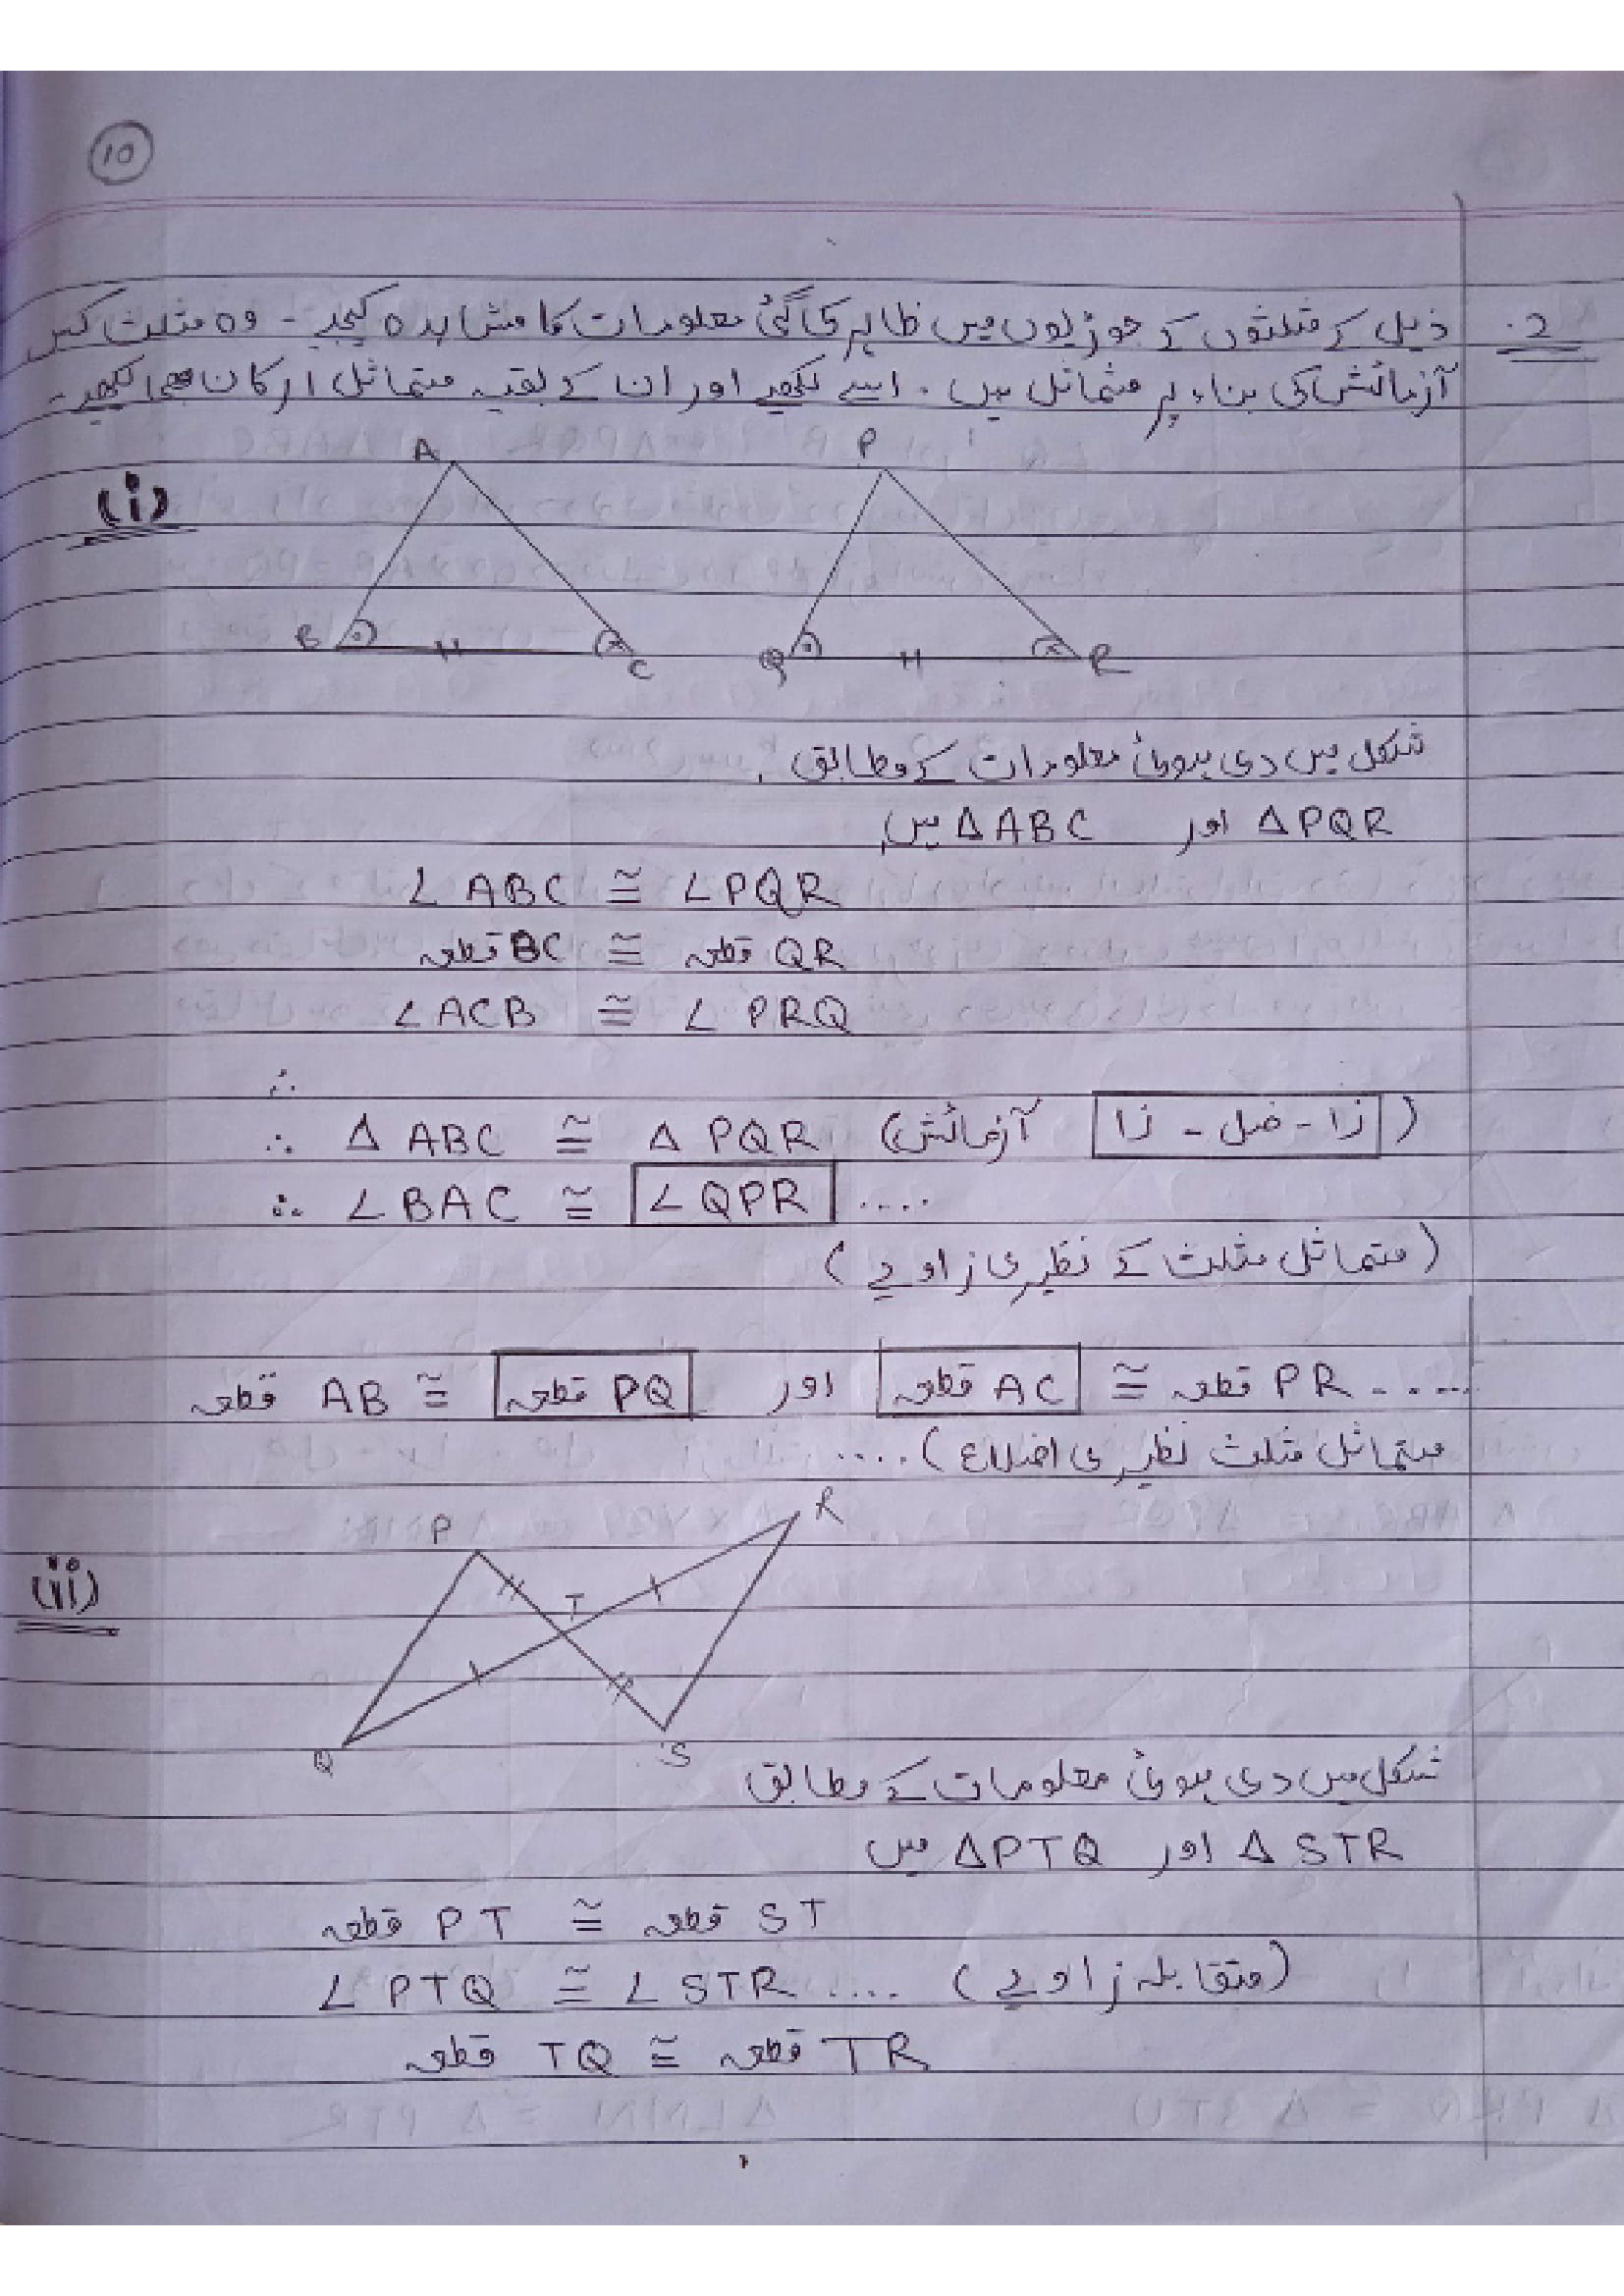 10
2. ذیل کے مثلثوں کے جوڑیوں میں ظاہر کی گئی معلومات کا مشاہدہ کیجیے - وہ مثلث کس
آزمائش کی بناء پر متماثل ہیں . اسے لکھیے اور ان کے بقیہ متماثل ارکان بھی لکھیے -
(i)
A
P
B
C
Q
R
شکل میں دی ہوئی معلومات کے مطابق ,
△PQR اور △ABC میں
∠ABC ≅ ∠PQR
قطعہ BC ≅ قطعہ QR
∠ACB ≅ ∠PRQ
∴
∴ △ABC ≅ △PQR (زا - ضل - زا آزمائش)
∴ ∠BAC ≅ ∠QPR ....
(متماثل مثلث کے نظیری زاویے)
قطعہ AB ≅ قطعہ PQ اور قطعہ AC ≅ قطعہ PR .....
متماثل مثلث نظیری اضلاع) ....
(ii)
P
R
T
Q
S
شکل میں دی ہوئی معلومات کے مطابق
△STR اور △PTQ میں
قطعہ PT ≅ قطعہ ST
∠PTQ ≅ ∠STR .... (متقابلہ زاویے)
قطعہ TQ ≅ قطعہ TR